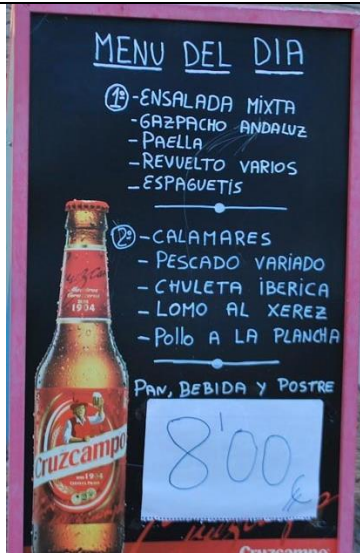 MENU DEL DIA
1º -ENSALADA MiXTA
-GAZPACHO ANDALUZ
-PAELLA
-REVUELTO VARIOS
-ESPAGUETiS
2º -CALAMARES
- PESCADO VARiADO
- CHULETA iBERiCA
- LOMO AL XEREZ
-Pollo A LA PLANCHA
PAN, BEBIDA Y POSTRE
8'00 €
1904
Cruzcampo
1904
Cruzcampo